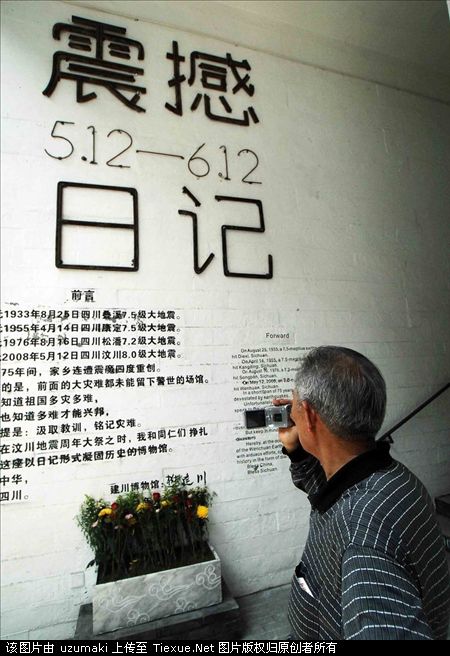 震撼
5.12—6.12
日记
前言
1933年8月25日四川叠溪7.5级大地震。
1955年4月14日四川康定7.5级大地震。
1976年8月16日四川松潘7.2级大地震。
2008年5月12日四川汶川8.0级大地震。
75年间，家乡连遭震魔四度重创。
的是，前面的大灾难都未能留下警世的场馆。
知道祖国多灾多难，
也知道多难才能兴邦，
提是：汲取教训，铭记灾难。
在汶川地震周年大祭之时，我和同仁们挣扎
这座以日记形式凝固历史的博物馆。
中华，
四川。
建川博物馆：
Forward
On August 25, 1933, a 7.5-magnitude
hit Diexi, Sichuan.
On April 14, 1955, a 7.5-magn
hit Kangding, Sichuan.
On August 16, 1976, a 7.2
hit Songpan, Sichuan.
On May 12, 2008, an 8.0
hit Wenchuan, Sichuan.
In a short span of 75 years
devastated by earthquakes
Unfortunately
But keep in
disasters
Hereby, at the
of the Wenchuan Ear
with arduous efforts,
history in the form of
Bless China,
Bless Sichuan.
该图片由 uzumaki 上传至 Tiexue.Net 图片版权归原创者所有